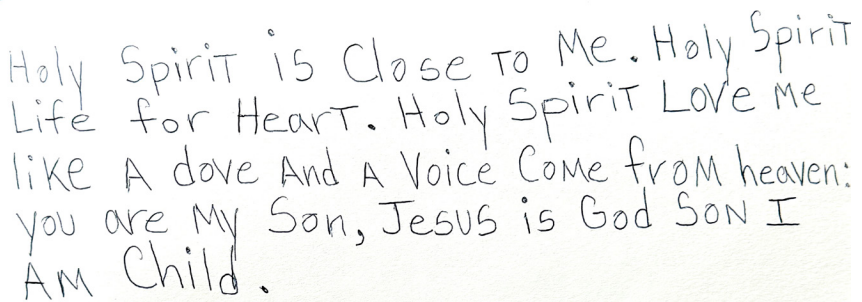 Holy Spirit is Close To Me. Holy Spirit
Life for Heart. Holy Spirit Love Me
like A dove And A Voice Come from heaven:
you are My Son, Jesus is God Son I
AM Child.